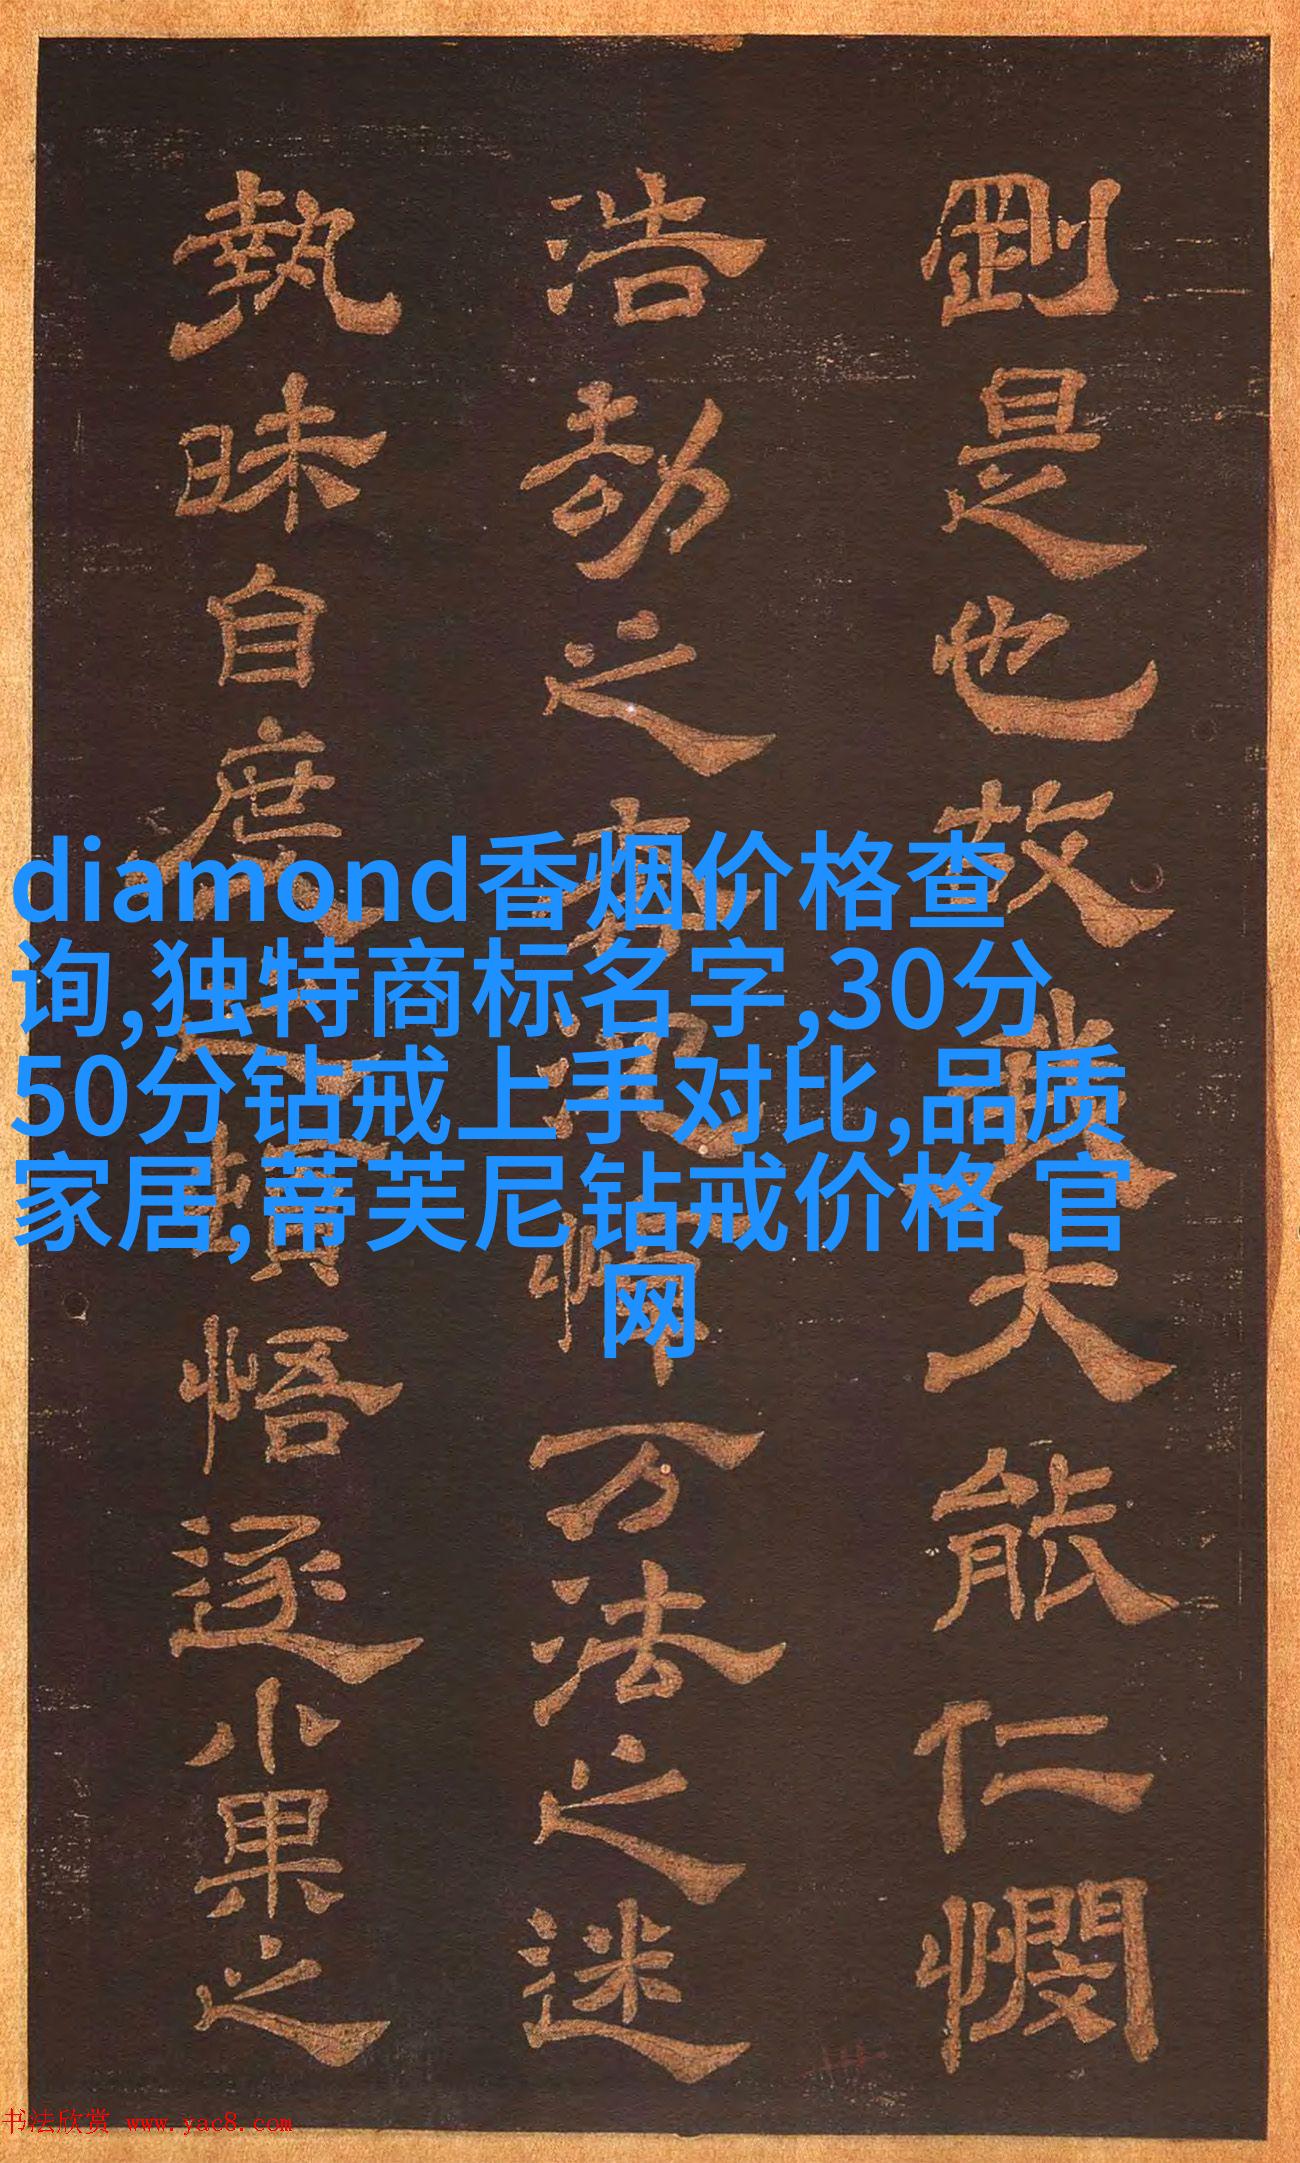 剛是也故大能仁憫
浩劫之万法之迷
執昧自庶悟逐小果之
diamond香烟价格查
询,独特商标名字,30分
50分钻戒上手对比,品质
家居,蒂芙尼钻戒价格 官
网
书法欣赏 www.yac8.com